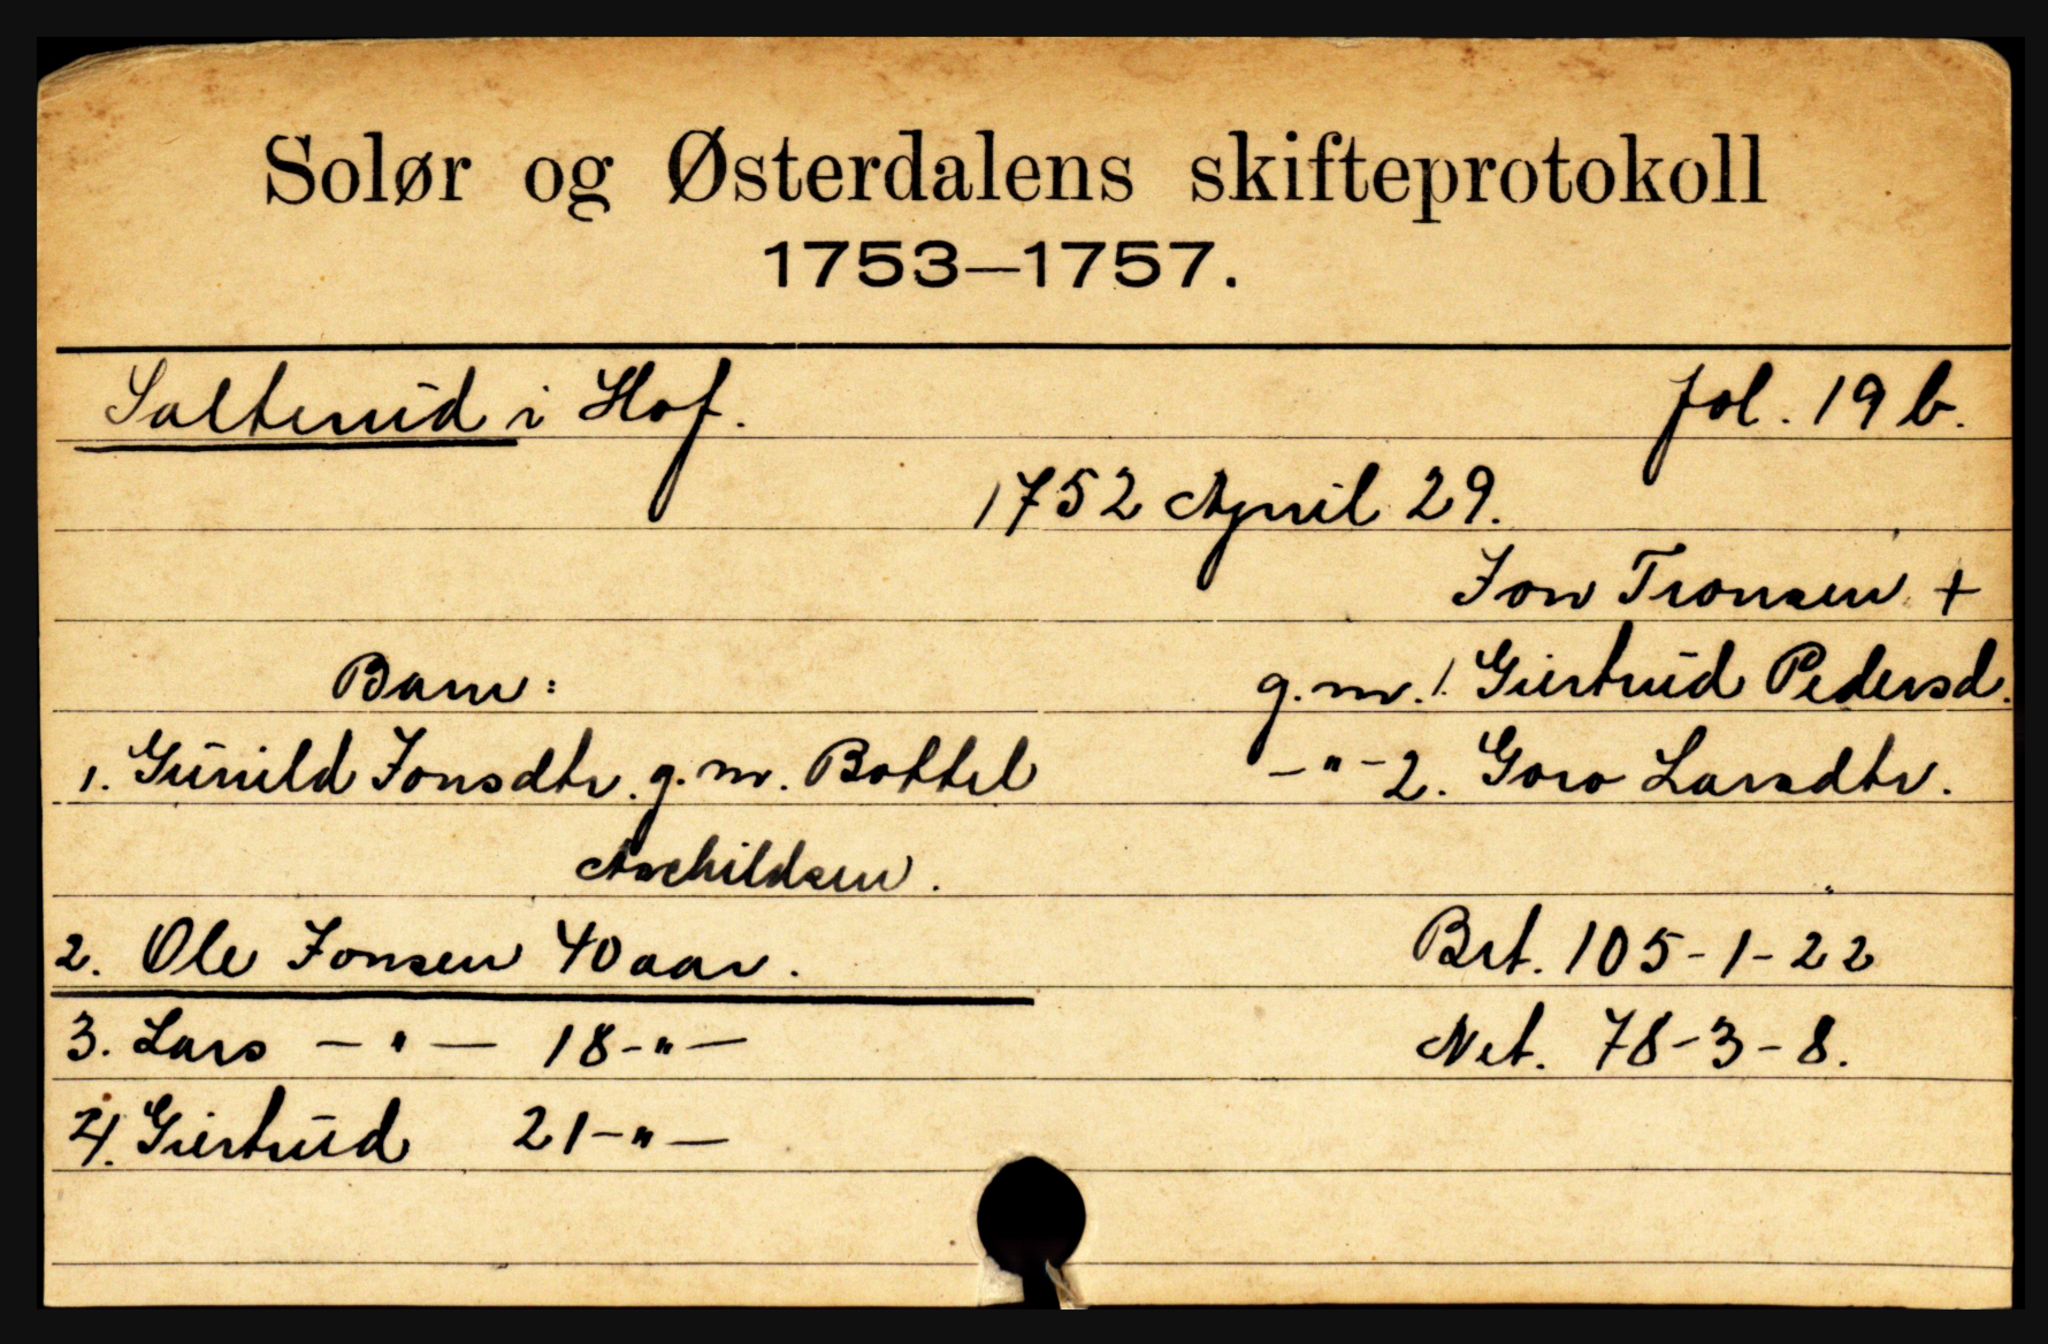 Solør og Østerdalens skifteprotokoll
1753—1757.
Salterud i Hof. fol. 19 b.
1752 April 29.
Jon Tronsen +
Barn: g.m. 1. Giertrud Pedersd.
1. Gunild Jonsdtr. g.m. Bottel -"- 2. Goro Larsdtr.
Aschildsen.
2. Ole Jonsen 40 aar. Brt. 105-1-22
3. Lars —"— 18-"— Net. 78-3-8.
4. Giertrud 21-"—